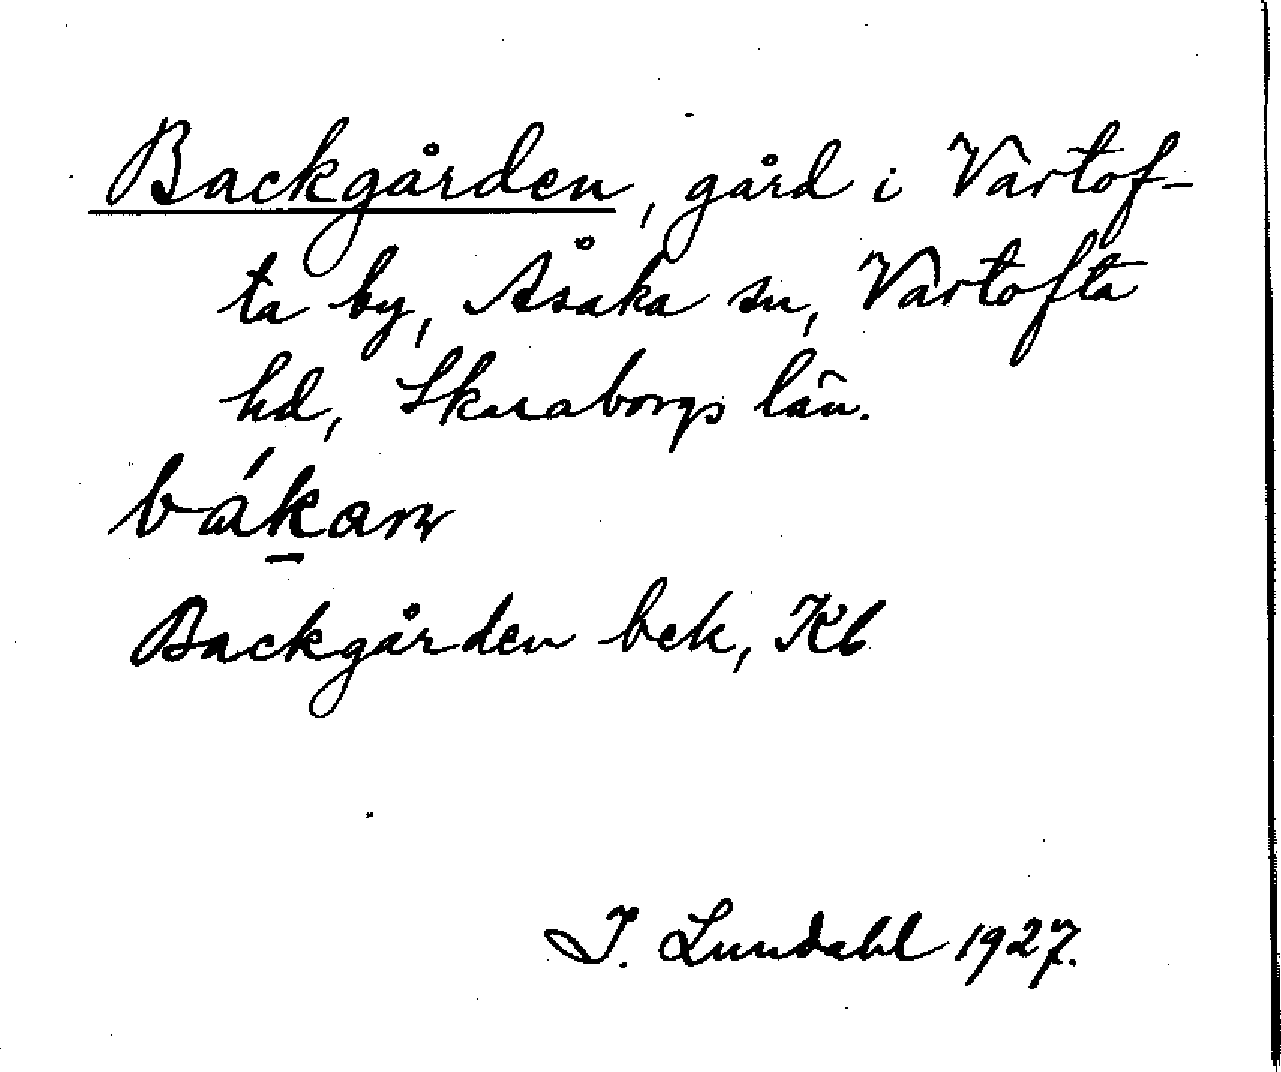 Backgården, gård i Vartof-
ta by, Åsaka sn, Vartofta
hd, Skaraborgs län.
bákan
Backgården bek, Kb
I. Lundahl 1927.